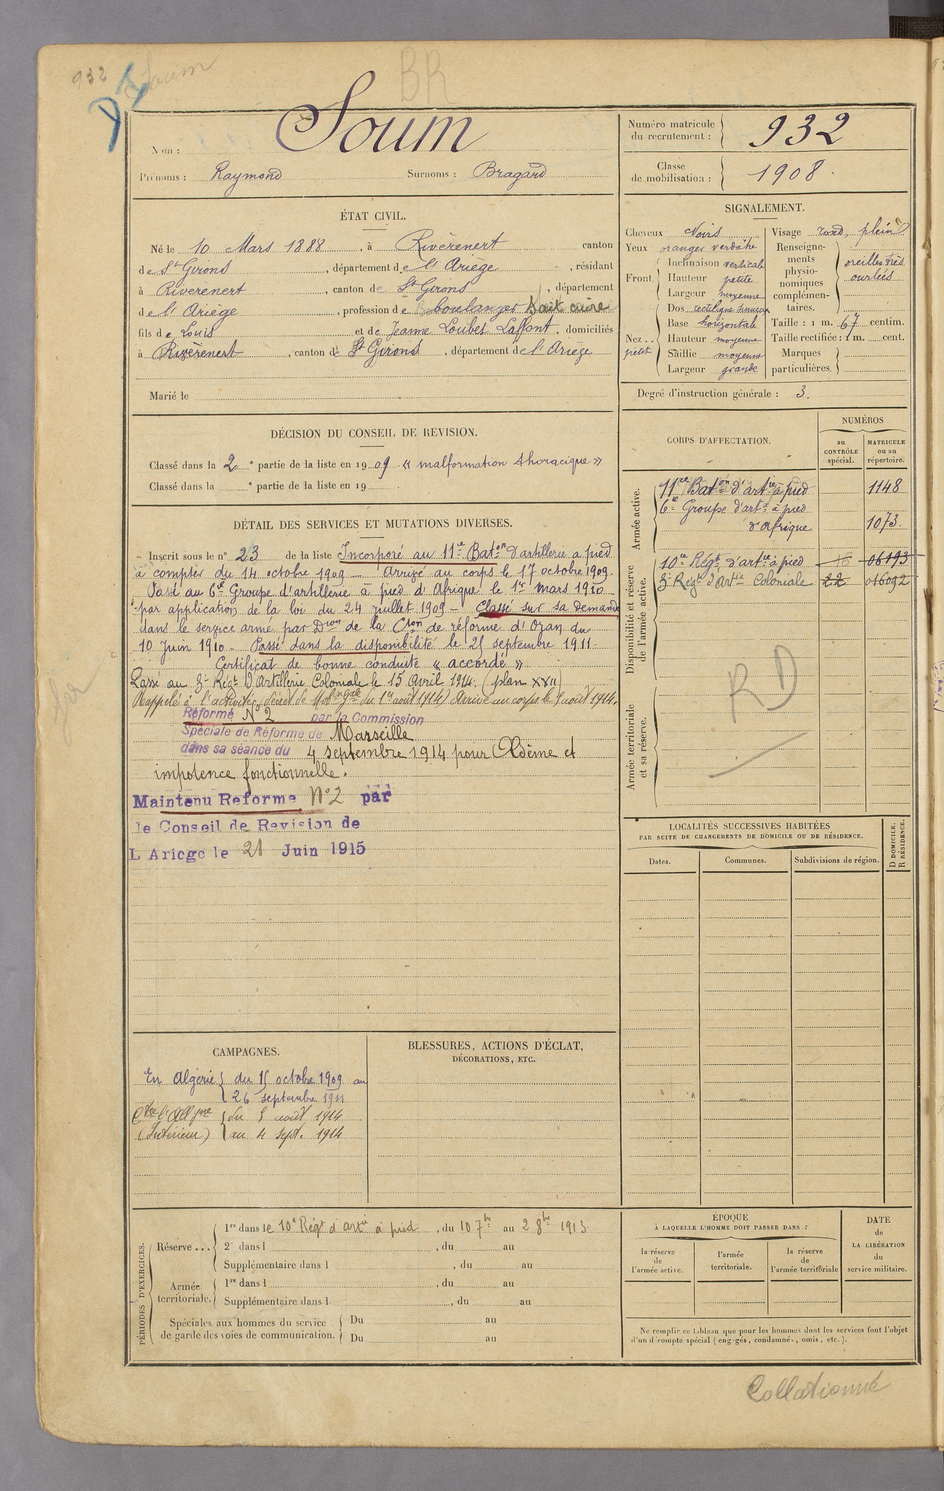 932 Soum
BR
Nom : Soum
Prénoms : Raymond Surnoms : Bragard
Numéro matricule du recrutement : 932
Classe de mobilisation : 1908.
ÉTAT CIVIL.
Né le 10 Mars 1888, à Rivèrenert canton
de St Girons, département de l'Ariège, résidant
à Riverenert, canton de St Girons, département
de l'Ariège, profession de boulanger
fils de Louis et de Jeanne Loubet Laffont, domiciliés
à Rivèrenert, canton de St Girons, département de l'Ariège
Marié le
SIGNALEMENT.
Cheveux Noirs
Yeux oranger verdâtre
Front.
Inclinaison verticale
Hauteur petite
Largeur moyenne
Nez.. petit
Dos rectiligne
Base horizontale
Hauteur moyenne
Saillie moyenne
Largeur grande
Visage rond, plein
Renseignements physionomiques complémentaires. oreilles très ourlées
Taille : 1 m. 67 centim.
Taille rectifiée : 1 m. cent.
Marques particulières.
Degré d'instruction générale : 3.
DÉCISION DU CONSEIL DE REVISION.
Classé dans la 2e partie de la liste en 1909 « malformation thoracique »
Classé dans la e partie de la liste en 19
CORPS D'AFFECTATION.
NUMÉROS
au CONTRÔLE spécial.
MATRICULE ou au répertoire.
Armée active.
11e Baton d'artie à pied 1148
6e Groupe d'artie à pied
d'Afrique 1073.
Disponibilité et réserve de l'armée active.
10e Régt d'artie à pied 16 06193
3e Régt d'Artie Coloniale 22 016092
Armée territoriale et sa réserve.
RD
DÉTAIL DES SERVICES ET MUTATIONS DIVERSES.
Inscrit sous le n° 23 de la liste Incorporé au 11e Baton d'artillerie à pied
à compter du 14 octobre 1909 — Arrivé au corps le 17 octobre 1909.
Passé au 6e Groupe d'artillerie à pied d'Afrique le 1er mars 1910
par application de la loi du 24 juillet 1909 – Classé sur sa demande
dans le service armé par Dion de la Cion de réforme d'Oran du
10 juin 1910. Passé dans la disponibilité le 25 septembre 1911.
Certificat de bonne conduite « accordé »
Passé au 3e Régt d'Artillerie Coloniale le 15 avril 1914. (plan XVII)
Rappelé à l'activité, décret de Mobon Gale du 1er août 1914, Arrivé au corps le 5 août 1914.
Réformé N°2 par la Commission
Spéciale de Réforme de Marseille
dans sa séance du 4 septembre 1914 pour Œdème et
impotence fonctionnelle.
Maintenu Réformé N°2 par
le Conseil de Revision de
L'Ariege le 21 Juin 1915
LOCALITÉS SUCCESSIVES HABITÉES
PAR SUITE DE CHANGEMENTS DE DOMICILE OU DE RÉSIDENCE.
Dates.
Communes.
Subdivisions de région.
D DOMICILE.
R RÉSIDENCE.
CAMPAGNES.
En Algérie du 15 octobre 1909 au
26 septembre 1911
Ctre l'Allgne du 5 août 1914
(Intérieur) au 4 sept. 1914
BLESSURES, ACTIONS D'ÉCLAT,
DÉCORATIONS, ETC.
PÉRIODES D'EXERCICES.
Réserve ...
1re dans le 10e Régt d'artie à pied, du 10 7bre au 2 8bre 1913
2e dans l , du au
Supplémentaire dans l , du au
Armée territoriale.
1re dans l , du au
Supplémentaire dans l , du au
Spéciales aux hommes du service de garde des voies de communication.
Du au
Du au
ÉPOQUE
À LAQUELLE L'HOMME DOIT PASSER DANS :
la réserve de l'armée active.
l'armée territoriale.
la réserve de l'armée territoriale
DATE de LA LIBÉRATION du service militaire.
Ne remplir ce tableau que pour les hommes dont les services font l'objet
d'un décompte spécial (engagés, condamnés, omis, etc.).
Collationné